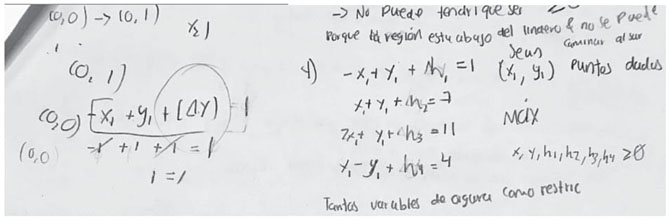 (0,0) → (0,1)
x≥1
(0,1)
(0,0) -x₁ + y₁ + (Δy) = 1
(0,0)
-1 + 1 + 1 = 1
1 = 1
→ No puede tendri que ser
Porque la región esta abajo del lindero & no se puede
caminar al sur
d) -x₁ + y₁ + h₁ = 1
Sean (x₁, y₁) puntos dados
x₁ + y₁ + h₂ = 7
2x₁ + y₁ + h₃ = 11
máx
x₁ - y₁ + h₄ = 4
x, y, h₁, h₂, h₃, h₄ ≥ 0
Tantas variables de como restric